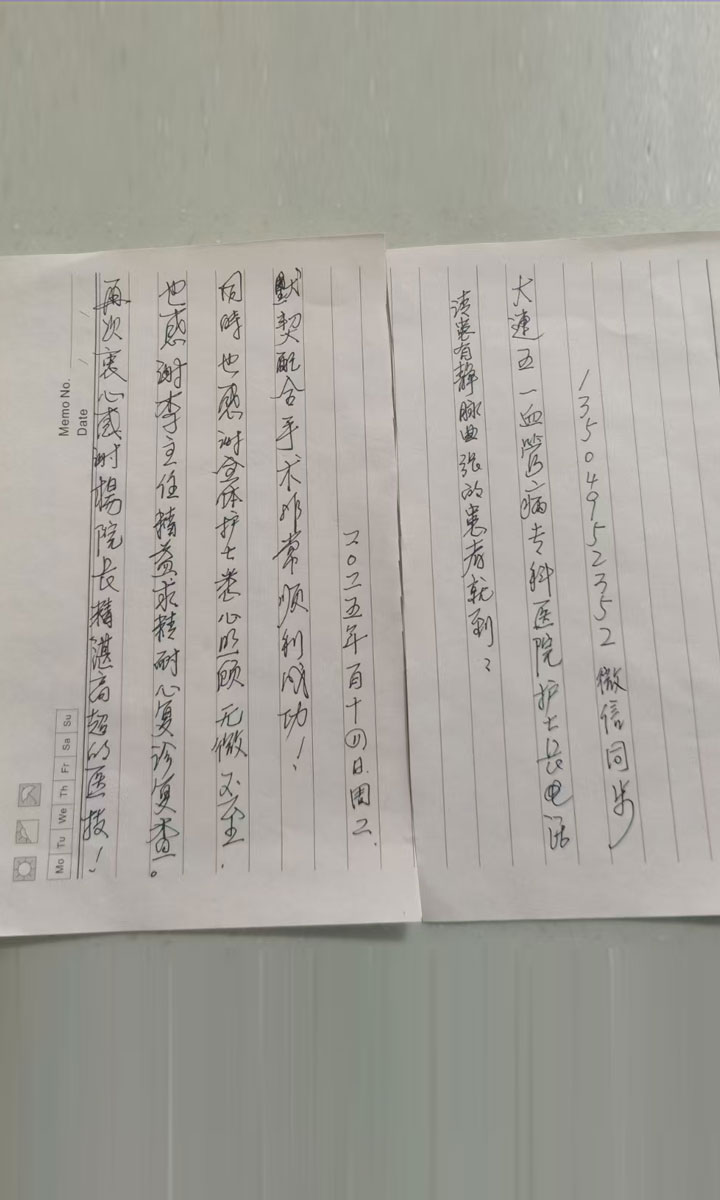 Memo No.
Date
Mo Tu We Th Fr Sa Su
再次衷心感谢杨院长精湛高超的医技！
也感谢李主任精益求精耐心复诊复查。
同時也感谢全体护士悉心照顾无微不至.
默契配合手术非常顺利成功！
二〇二五年十四日周二.
请患有静脉曲张的患者就到：
大連五一血管病专科医院护士长电话
13504952352 微信同步